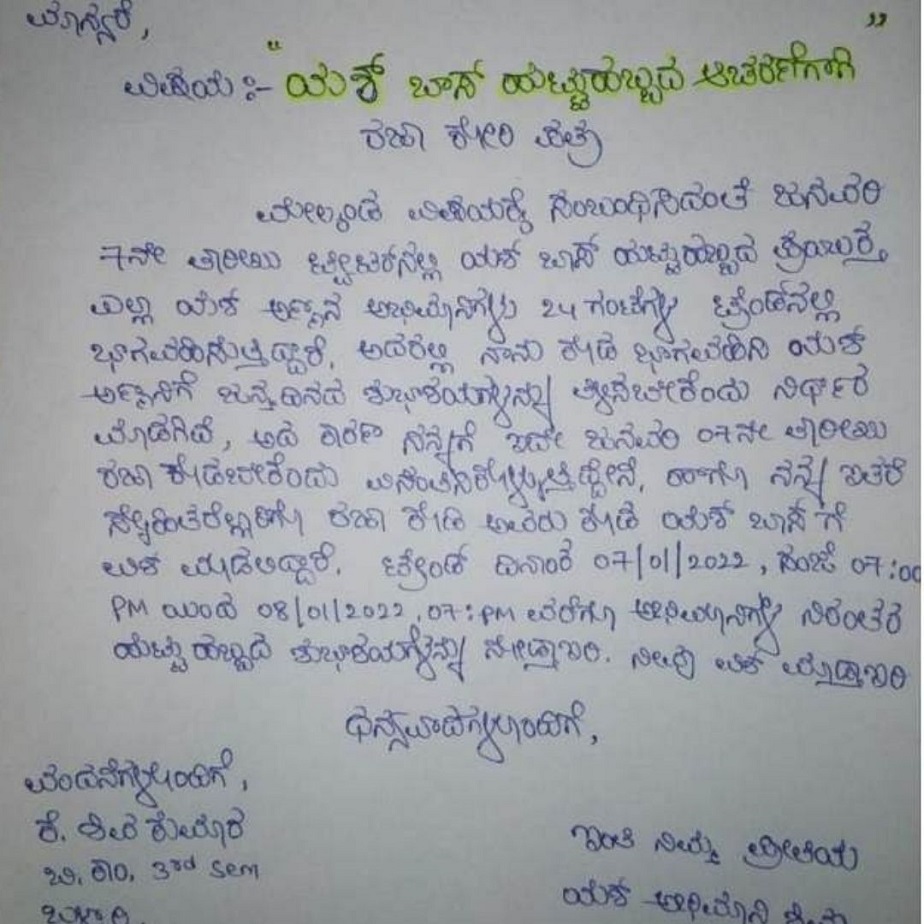 ಮಾನ್ಯರೆ,
ವಿಷಯ :- "ಯಶ್ ಬಾಸ್ ಹಟ್ಟುಹಬ್ಬದ ಆಚರಣೆಗಾಗಿ"
ರಜಾ ಕೋರಿ ಪತ್ರ
ಮೇಲ್ಕಂಡ ವಿಷಯಕ್ಕೆ ಸಂಬಂಧಿಸಿದಂತೆ ಜನವರಿ
7ನೇ ತಾರೀಖು ಟ್ವೀಟರ್‌ನಲ್ಲಿ ಯಶ್ ಬಾಸ್ ಹಟ್ಟುಹಬ್ಬದ ಪ್ರಯುಕ್ತ
ಎಲ್ಲಾ ಯಶ್ ಅಣ್ಣನ ಅಭಿಮಾನಿಗಳು 24 ಗಂಟೆಗಳ ಟ್ರೆಂಡ್‌ನಲ್ಲಿ
ಭಾಗವಹಿಸುತ್ತಿದ್ದಾರೆ, ಅದರಲ್ಲಿ ನಾನು ಕೂಡ ಭಾಗವಹಿಸಿ ಯಶ್
ಅಣ್ಣನಿಗೆ ಜನ್ಮದಿನದ ಶುಭಾಶಯಗಳನ್ನು ತಿಳಿಸಬೇಕೆಂದು ನಿರ್ಧಾರ
ಮಾಡಿದೆ, ಆದ ಕಾರಣ ನನ್ನಗೆ ಇದೇ ಜನವರಿ 07ನೇ ತಾರೀಖು
ರಜಾ ಕೊಡಬೇಕೆಂದು ವಿನಂತಿಸಿಕೊಳ್ಳುತ್ತಿದ್ದೇನೆ, ಹಾಗೂ ನನ್ನ ಇತರೆ
ಸ್ನೇಹಿತರೆಲ್ಲರಿಗೂ ರಜಾ ಕೊಡಿ ಅವರು ಕೂಡ ಯಶ್ ಬಾಸ್ ಗೆ
ವಿಶ್ ಮಾಡಲಿದ್ದಾರೆ. ಟ್ರೆಂಡ್ ದಿನಾಂಕ 07/01/2022, ಸಂಜೆ 07:00
PM ಯಿಂದ 08/01/2022, 07:PM ವರೆಗೂ ಅಭಿಮಾನಿಗಳು ನಿರಂತರ
ಹಟ್ಟುಹಬ್ಬದ ಶುಭಾಶಯಗಳನ್ನು ನೋಡ್ತಾಇರಿ. ನೀವು ವಿಶ್ ಮಾಡ್ತಾಇರಿ
ಧನ್ಯವಾದಗಳೊಂದಿಗೆ,
ವಂದನೆಗಳೊಂದಿಗೆ,
ಕೆ. ಶಿವ ಕುಮಾರ
ಬಿ, ಕಾಂ, 3rd sem
ಬಳ್ಳಾರಿ.
ಇಂತಿ ನಿಮ್ಮ ಪ್ರೀತಿಯ
ಯಶ್ ಅಭಿಮಾನಿ